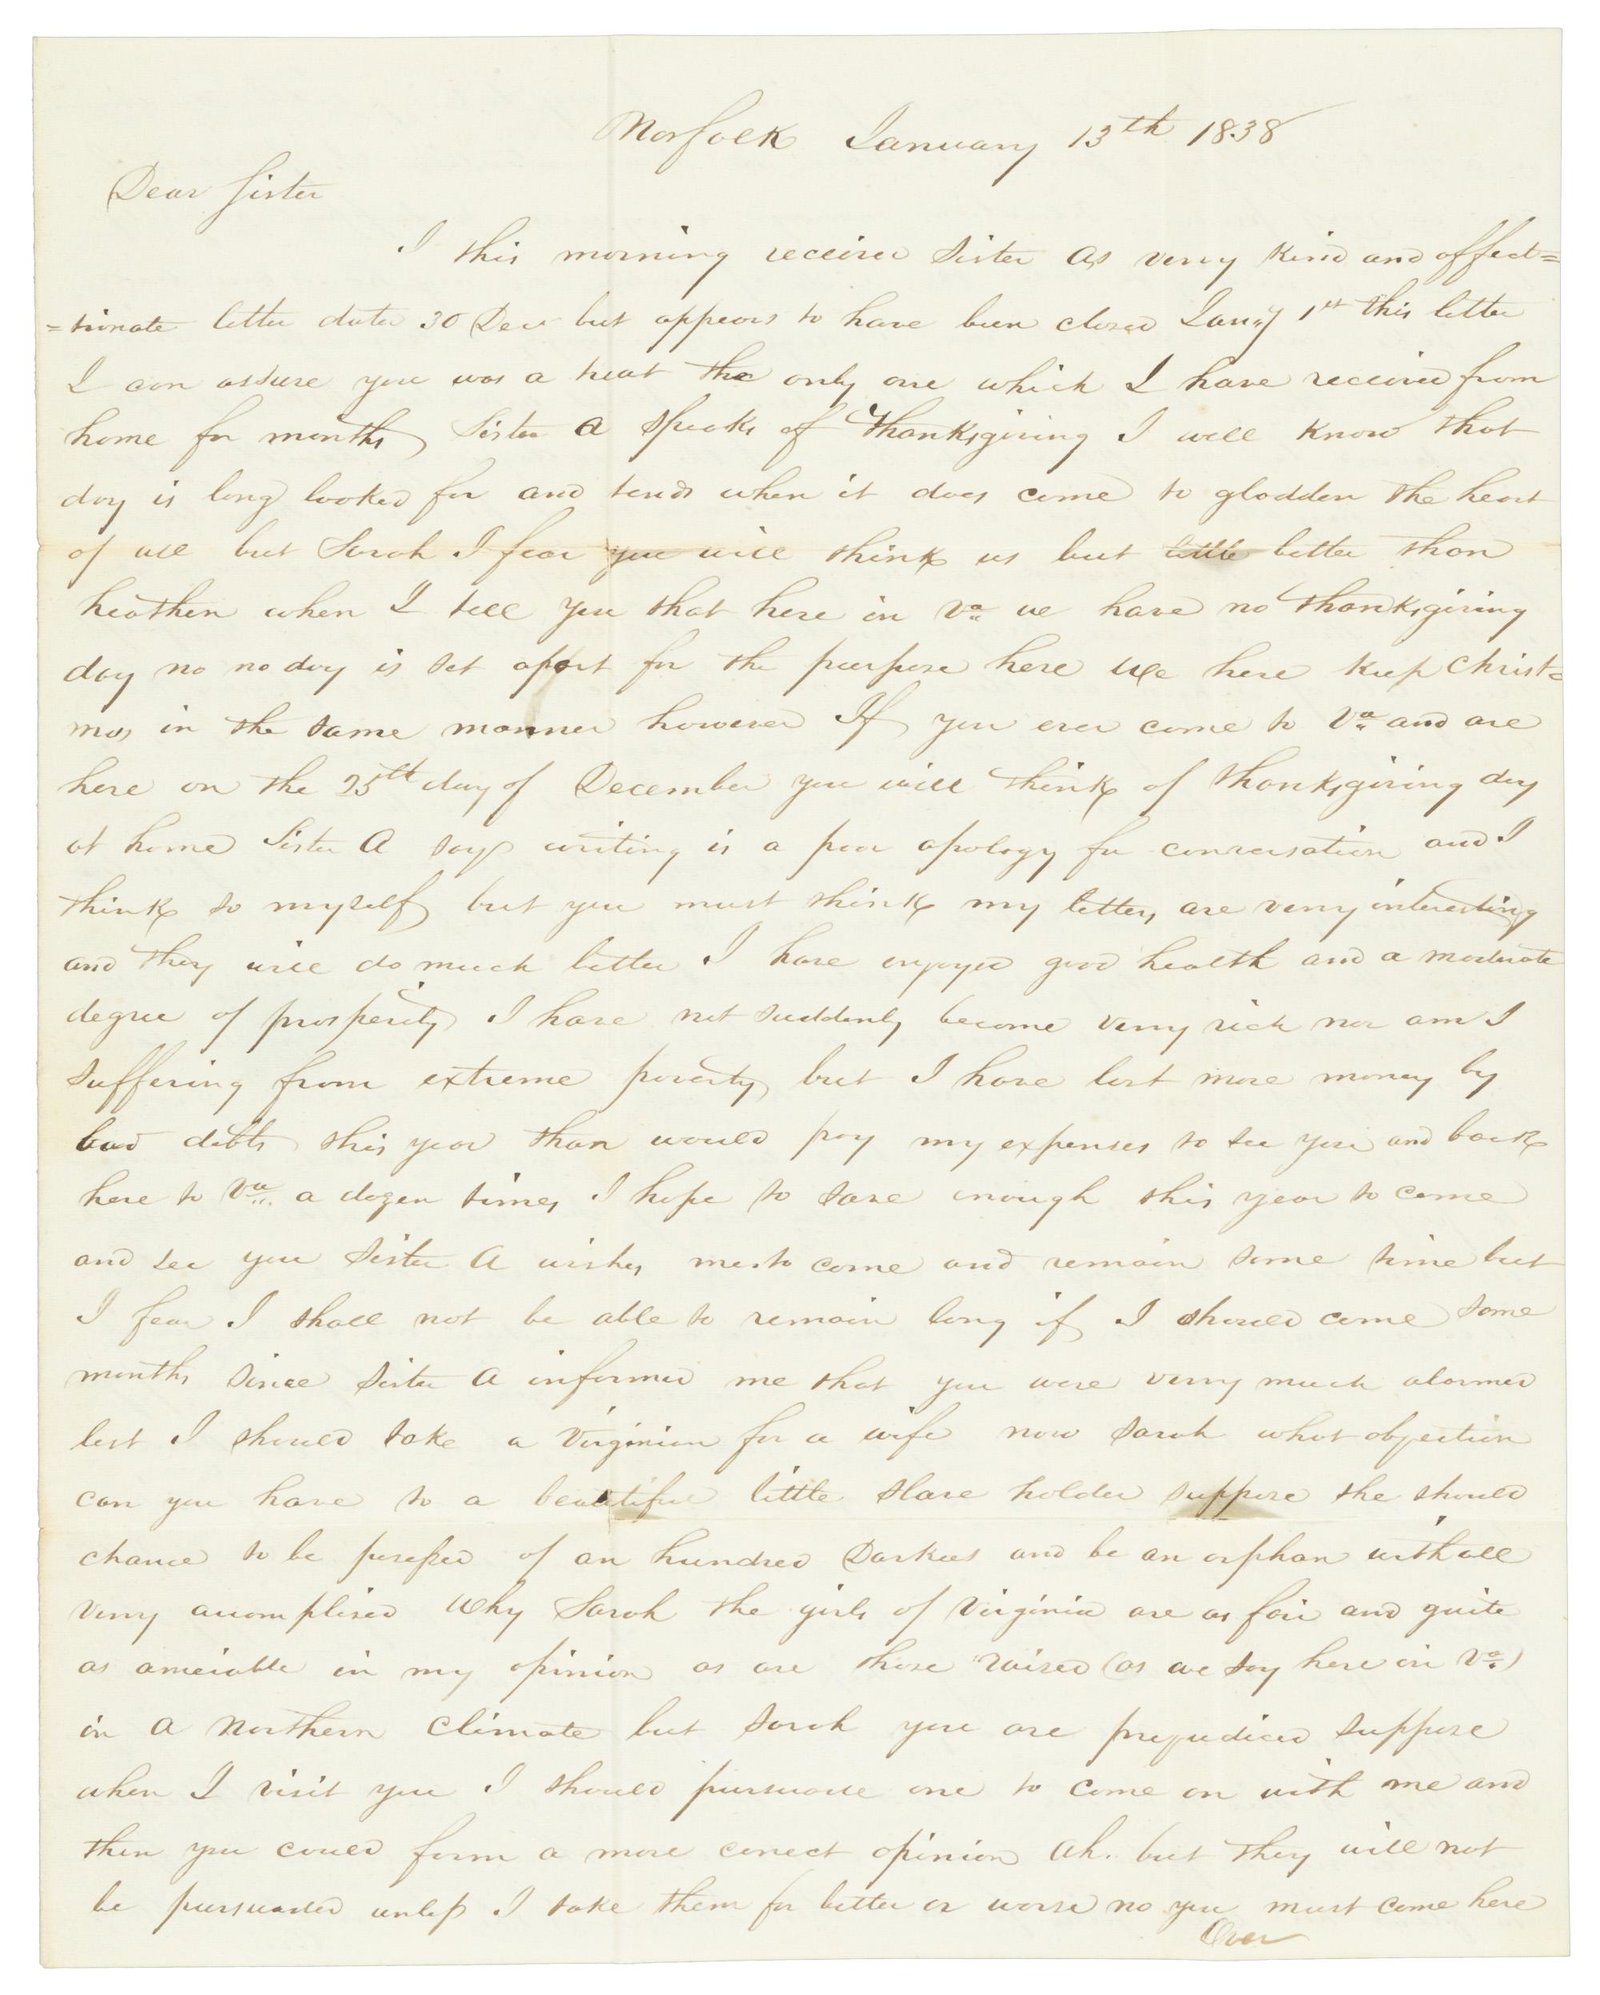 Norfolk January 13th 1838
Dear Sister
I this morning received Sister As very kind and affect=
=tionate letter dated 30 Dec but appears to have been closed Jany 1st this letter
I can assure you was a treat the only one which I have received from
home for months Sister A speaks of Thanksgiving I well know that
day is long looked for and tends when it does come to gladden the heart
of all but Sarah I fear you will think us but little better than
heathen when I tell you that here in Va we have no thanksgiving
day no no day is set apart for the purpose here We here keep Christ=
mas in the same manner however If you ever come to Va and are
here on the 25th day of December you will think of thanksgiving day
at home Sister A says writing is a poor apology for conversation and I
think so myself but you must think my letters are very interesting
and they will do much better I have enjoyed good health and a moderate
degree of prosperity I have not suddenly become very rich nor am I
suffering from extreme poverty but I have lost more money by
bad debts this year than would pay my expenses to see you and back
here to Va a dozen times I hope to save enough this year to come
and see you Sister A wishes me to come and remain some time but
I fear I shall not be able to remain long if I should come some
months since Sister A informed me that you were very much alarmed
lest I should take a Virginian for a wife now Sarah what objection
can you have to a beautiful little slave holder suppose she should
chance to be possessed of an hundred Darkees and be an orphan withall
very accomplised Why Sarah the girls of Virginia are as fair and quite
as ameiable in my opinion as are those raised (as we say here in Va)
in a Northern Climate but Sarah you are prejudiced suppose
when I visit you I should pursuade one to come on with me and
then you could form a more correct opinion Ah. but they will not
be pursuaded unless I take them for better or worse no you must come here
Over